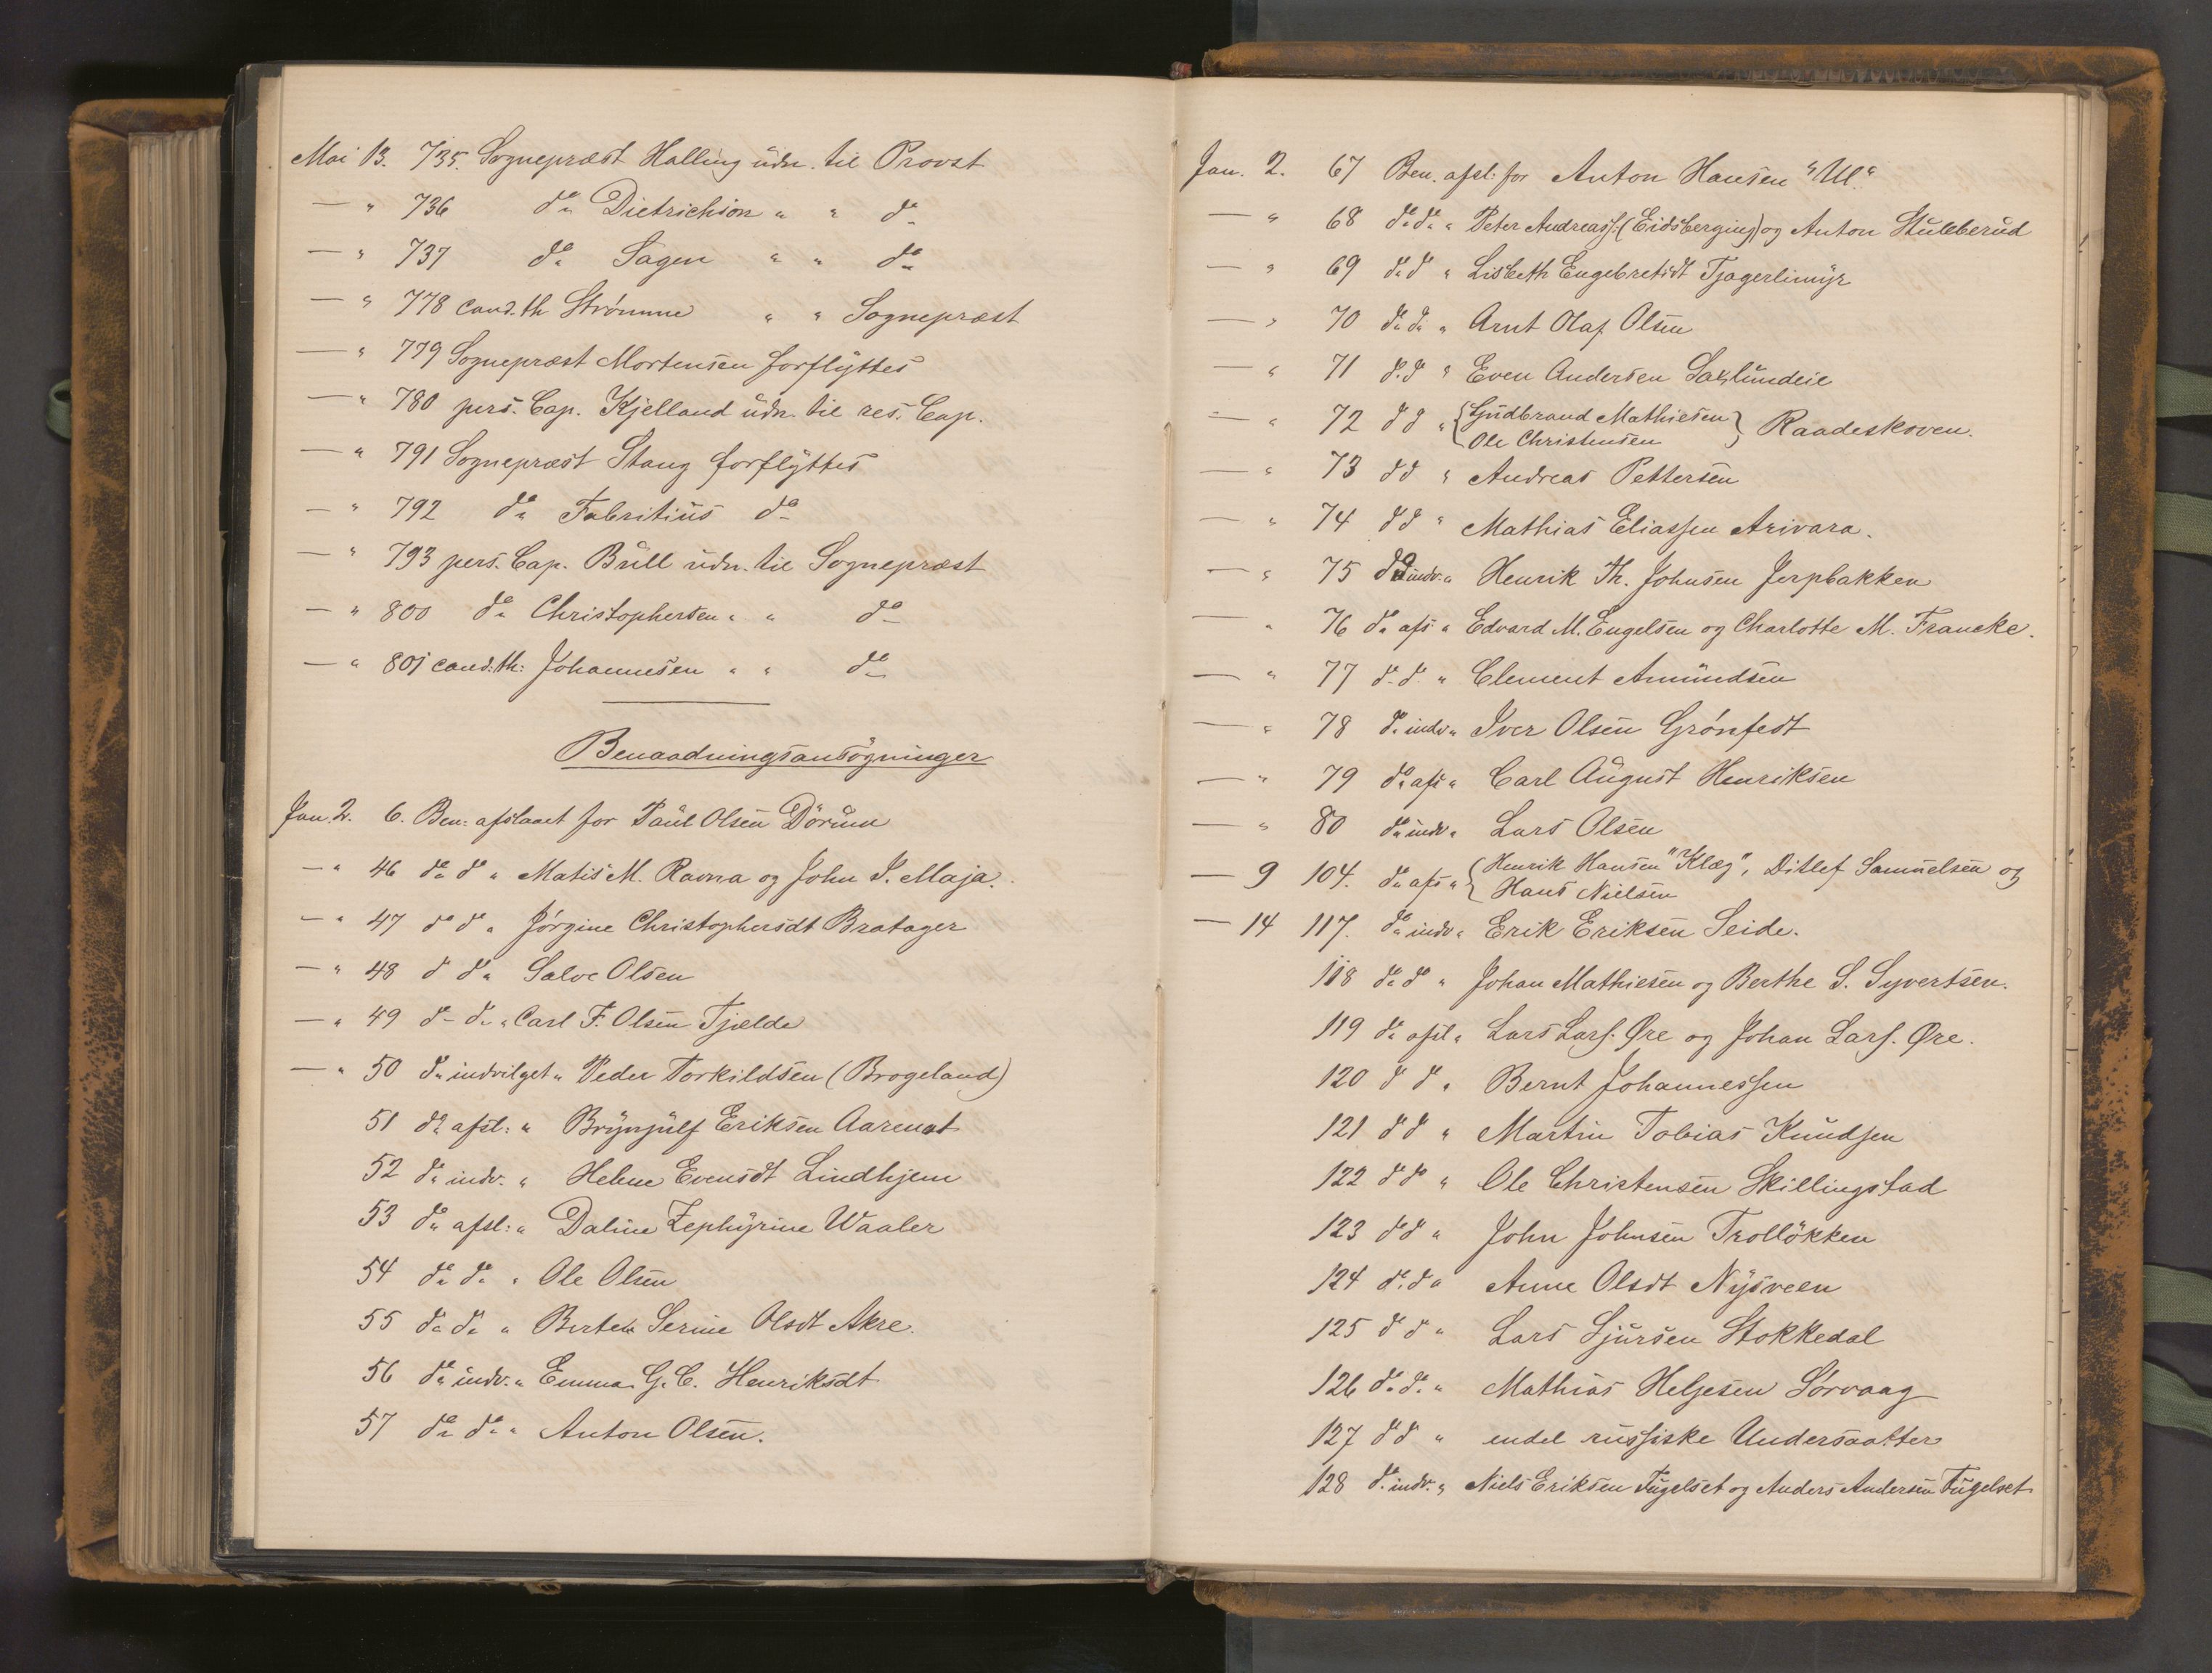 Mai 13. 735. Sognepræst Halling udn. til Provst
— " 736 do Dietrichson " " do
— " 737 do Sagen " " do
— " 778 cand. th Strömme " " Sognepræst
— " 779 Sognepræst Mortensen forflyttes
— " 780 pers. Cap. Kjelland udn. til res. Cap.
— " 791 Sognepræst Stang forflyttes
— " 792 do Fabritius do
— " 793 pers. Cap. Bull udn. til Sognepræst
— " 800 do Christophersen " " do
— " 801 cand: th: Johannesen " " do
Benaadningsansögninger
Jan. 2. 6. Ben: afslaaet for Paul Olsen Dörum
— " 46 do do " Matis M. Ravna og John I. Maja.
— " 47 do do " Jörgine Christophersdt Bratager
— " 48 do do " Salve Olsen
— " 49 do do " Carl F. Olsen Tjælde
— " 50 do indvilget " Peder Torkildsen (Brogeland)
51 do afsl: " Brynjulf Eriksen Aarenat
52 do indv. " Helene Evensdt Lindhjem
53 do afsl: " Daline Zephyrine Waaler
54 do do " Ole Olsen
55 do do " Berte Serine Olsdt Akre.
56 do indv. " Emma G. C. Henriksdt
57 do do " Anton Olsen.
Jan. 2. 67 Ben. afsl: for Anton Hansen "Ul"
— " 68 do do " Peter Andreass. (Eidsberging) og Anton Stubberud
— " 69 do do " Lisbeth Engebretsdt Tjagerlimyr
— " 70 do do " Arnt Olaf Olsen
— " 71 do do " Even Andersen Saxlundeie
— " 72 do do " {Gudbrand Mathiesen
Ole Christensen} Raadeskoven.
— " 73 do do " Andreas Pettersen
— " 74 do do " Mathias Eliassen Arivara.
— " 75 do indv. " Henrik Th. Johnsen Jerpbakken
— " 76 do afs " Edvard M. Engelsen og Charlotte M. Francke.
— " 77 do do " Clement Amundsen
— " 78 do indv " Iver Olsen Grönfedt
— " 79 do afs " Carl August Henriksen
— " 80 do indv " Lars Olsen
— 9 104. do afs " {Henrik Hansen "Klæg", Ditlef Samuelsen og
Hans Nielsen
— 14 117. do indv " Erik Eriksen Seide.
118 do do " Johan Mathiesen og Berthe S. Syvertsen.
119 do afsl " Lars Lars. Øre og Johan Lars. Øre.
120 do do " Bernt Johannessen
121 do do " Martin Tobias Knudsen
122 do do " Ole Christensen Skillingstad
123 do do " John Johnsen Trollökken
124 do do " Anne Olsdt Nysveen
125 do do " Lars Sjursen Stokkedal
126 do do " Mathias Helgesen Sörvaag
127 do do " endel russiske Undersaatter
128 do indv. " Niels Eriksen Fugelset og Anders Andersen Fugelset